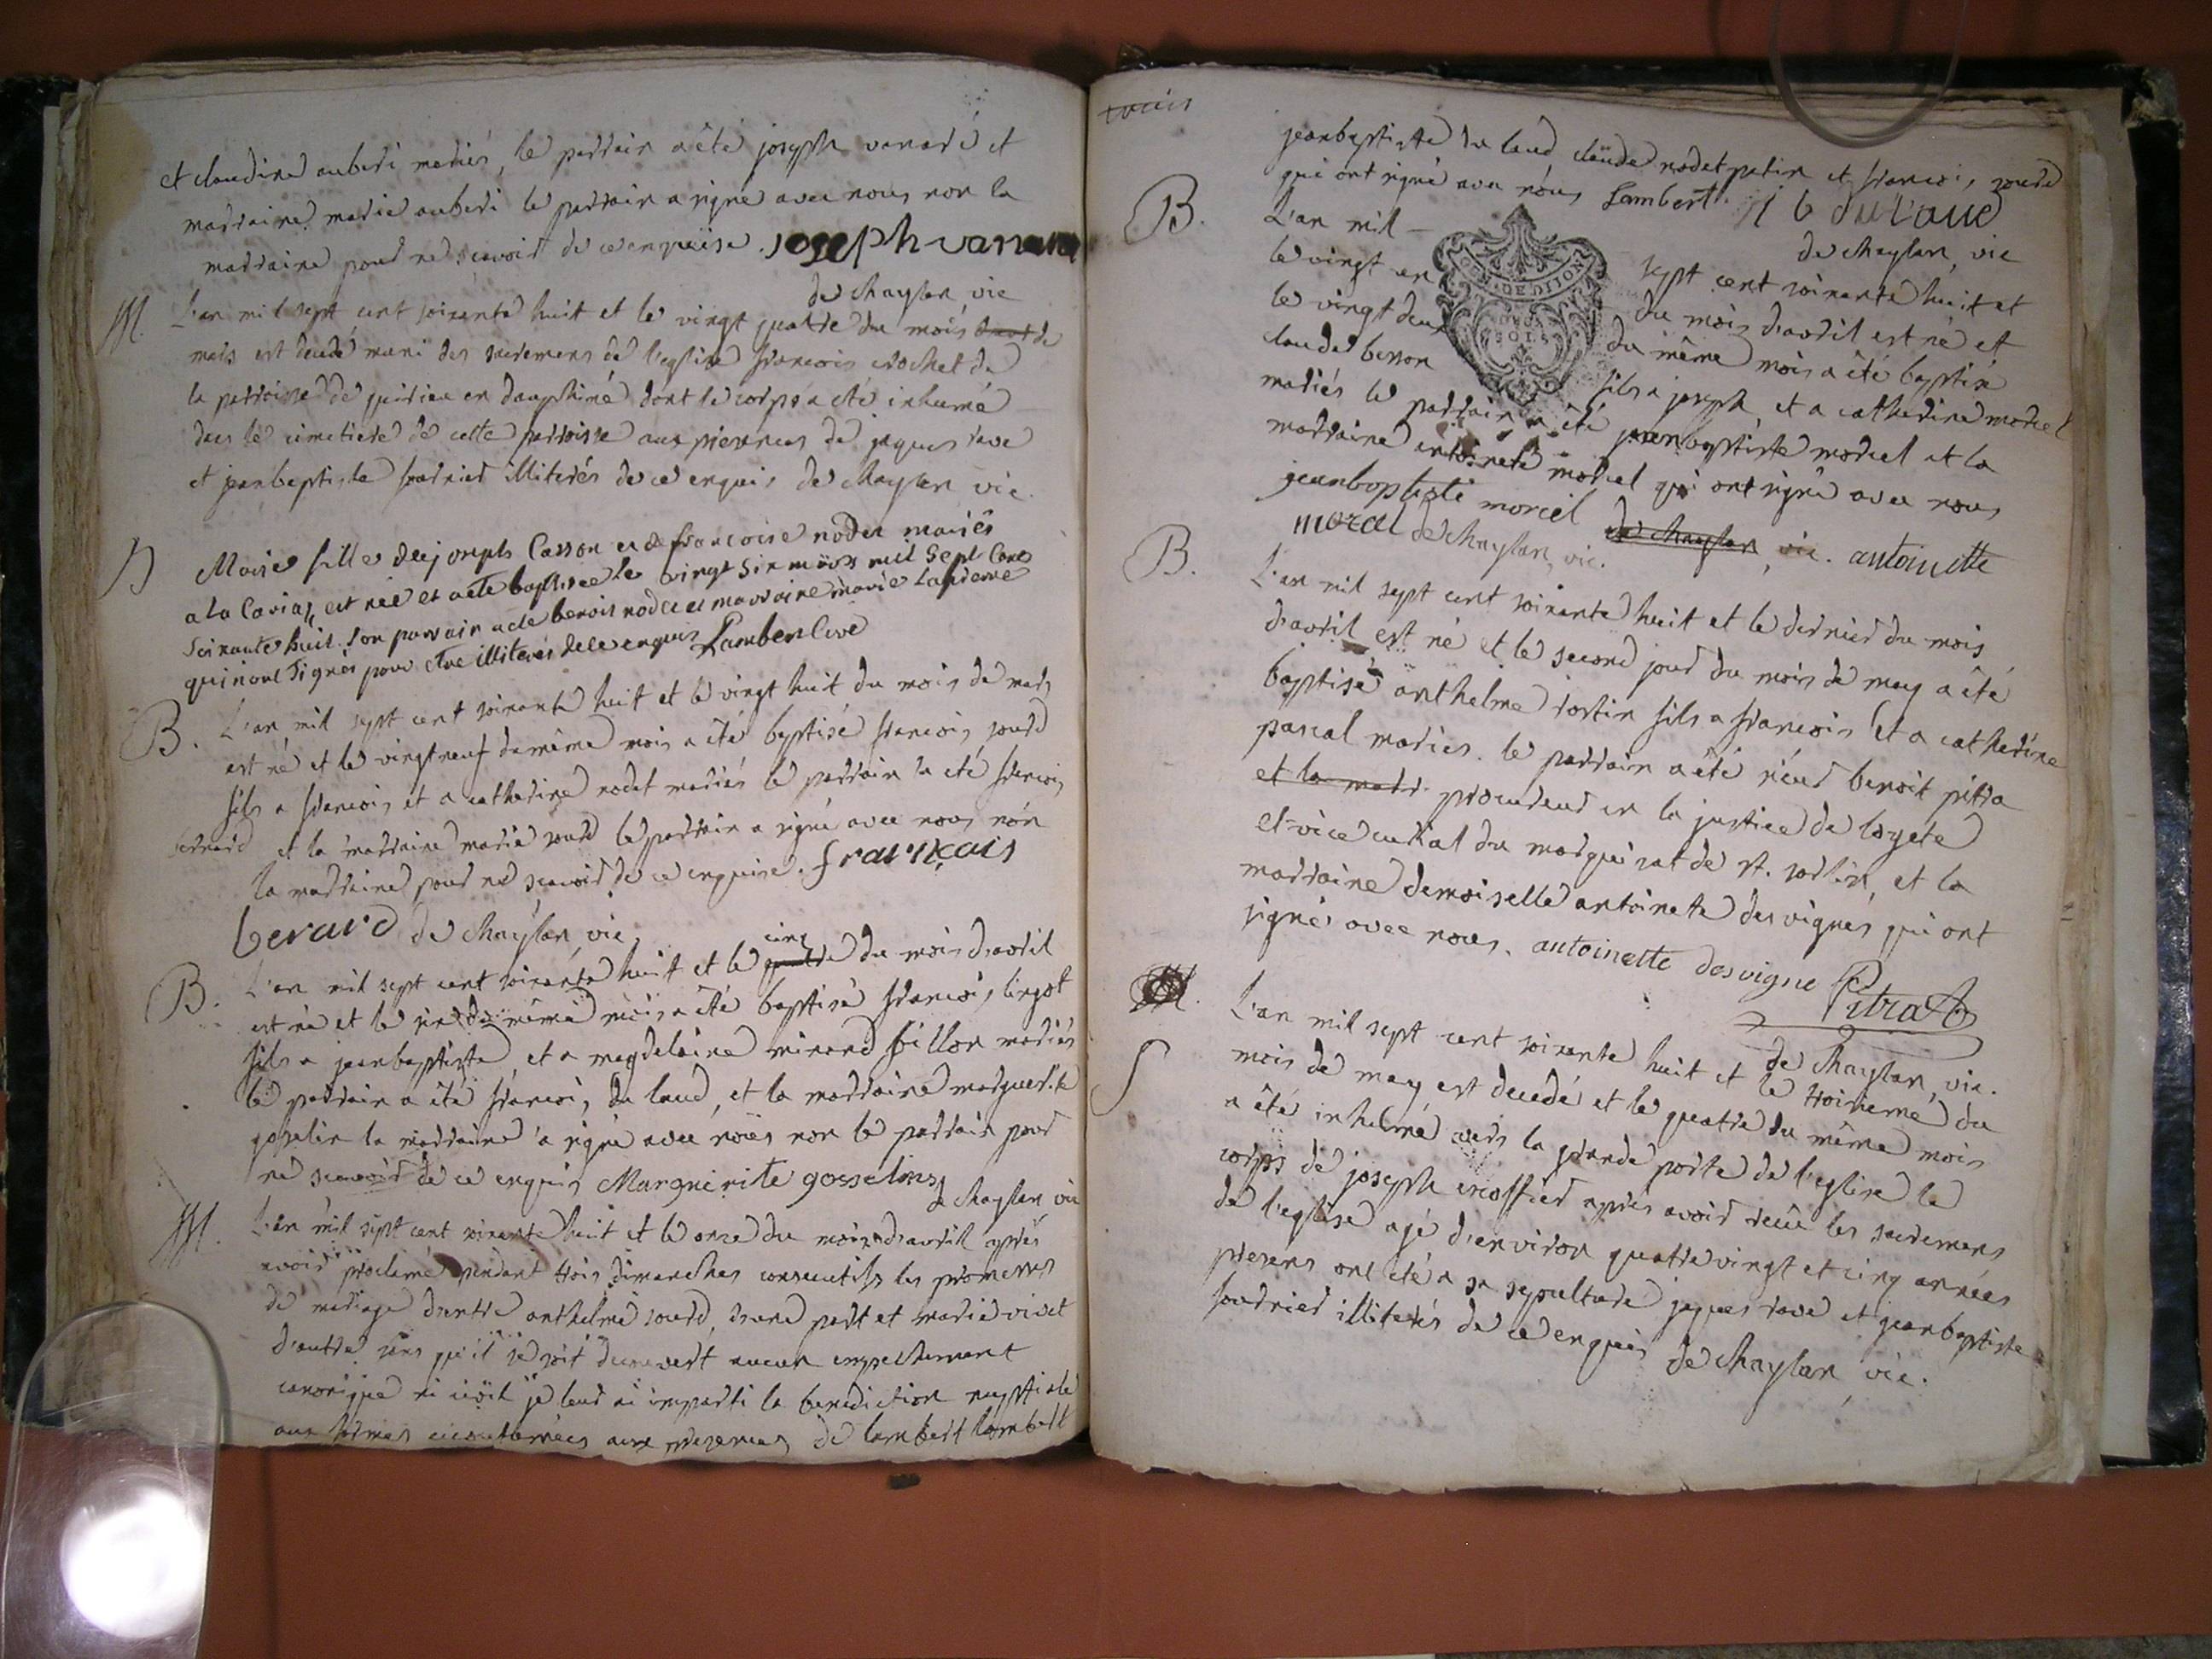 et claudine auberi mariés, le parrain a été joseph vanaré et
marraine marie auberi le parrain a signé avec nous non la
marraine pour ne scavoir de ce enquise. joseph vanare
de chaylan, vic
M. L'an mil sept cent soixante huit et le vingt quatre du mois de
mars est decedé muni des sacremens de l'eglise francois crochet de
la parroisse de quirieu en dauphiné dont le corps a été inhumé
dans le cimetiere de cette parroisse aux presences de jaques rave
et jeanbaptiste fournier illiterés de ce enquis de chaylan vic.
B Marie fille de joseph Casson et de francoise noder mariés
a la Carias, est née et a été baptisée le vingt six mars mil sept Cent
soixante huit. son parrain a été benoit noder et marraine marie
qui n'ont signés pour etre illiterés de ce enquis Lambert Curé
B. L'an mil sept cent soixante huit et le vingt huit du mois de mars
est né et le vingt neuf du même mois a été baptisé francois, sourd
fils a francois et a catherine nodet mariés le parrain a été francois
berard et la marraine marie sourd le parrain a signé avec nous non
la marraine pour ne scavoir de ce enquise. francois
berard de chaylan, vic.
cinq
B. L'an mil sept cent soixante huit et le quatre du mois d'avril
est né et le six du même mois a été baptisé francois, lingot
fils a jeanbaptiste, et a magdelaine minand fillon mariés
le parrain a été francois, du laud, et la marraine marguerite
goselin la marraine a signé avec nous non le parrain pour
ne scavoir de ce enquis Marguerite gosselins
de chaylan vic
M. L'an mil sept cent soixante huit et le onze du mois d'avril après
avoir proclamé pendant trois dimanches consecutifs les promesses
de mariage d'entre anthelme sourd, d'une part et marie vivet
d'autre sans qu'il se soit decouvert aucun empechement
canonique ni civil je leur ai imparti la benediction nuptiale
aux formes accoutumées aux presences de lambert lambert
jeanbaptiste du laud claude nodet patin et francois, sourd
qui ont signé avec nous Lambert. J b dulaud
de chaylan, vic
B. L'an mil sept cent soixante huit et
le vingt un du mois d'avril est né et
le vingt deux du même mois a été baptisé
claude besson fils a joseph et a catherine morel
mariés le parrain a été jeanbaptiste morel et la
marraine antoinete morel qui ont signé avec nous
jeanbaptiste morel de chaylan, vic. antoinette
morel de chaylan, vic.
B. L'an mil sept cent soixante huit et le dernier du mois
d'avril est né et le second jour du mois de may a été
baptisé anthelme tortin fils a francois et a catherine
pascal mariés. le parrain a été sieur benoit pitra
et la marr. procureur en la justice de loyete
et vice curial du marquisat de st. sorlin, et la
marraine demoiselle antoinete des vignes qui ont
signés avec nous. antoinette desvigne Pitrat
de chaylan, vic.
S L'an mil sept cent soixante huit et le troisieme du
mois de may est decedé et le quatre du même mois
a été inhumé vers la grande porte de l'eglise le
corps de joseph croffier après avoir reçu les sacremens
de l'eglise agé d'environ quatre vingt et cinq années
presens ont été a sa sepulture jaques rave et jeanbaptiste
fournier illiterés de ce enquis de chaylan, vic.
GEN. DE DIJON